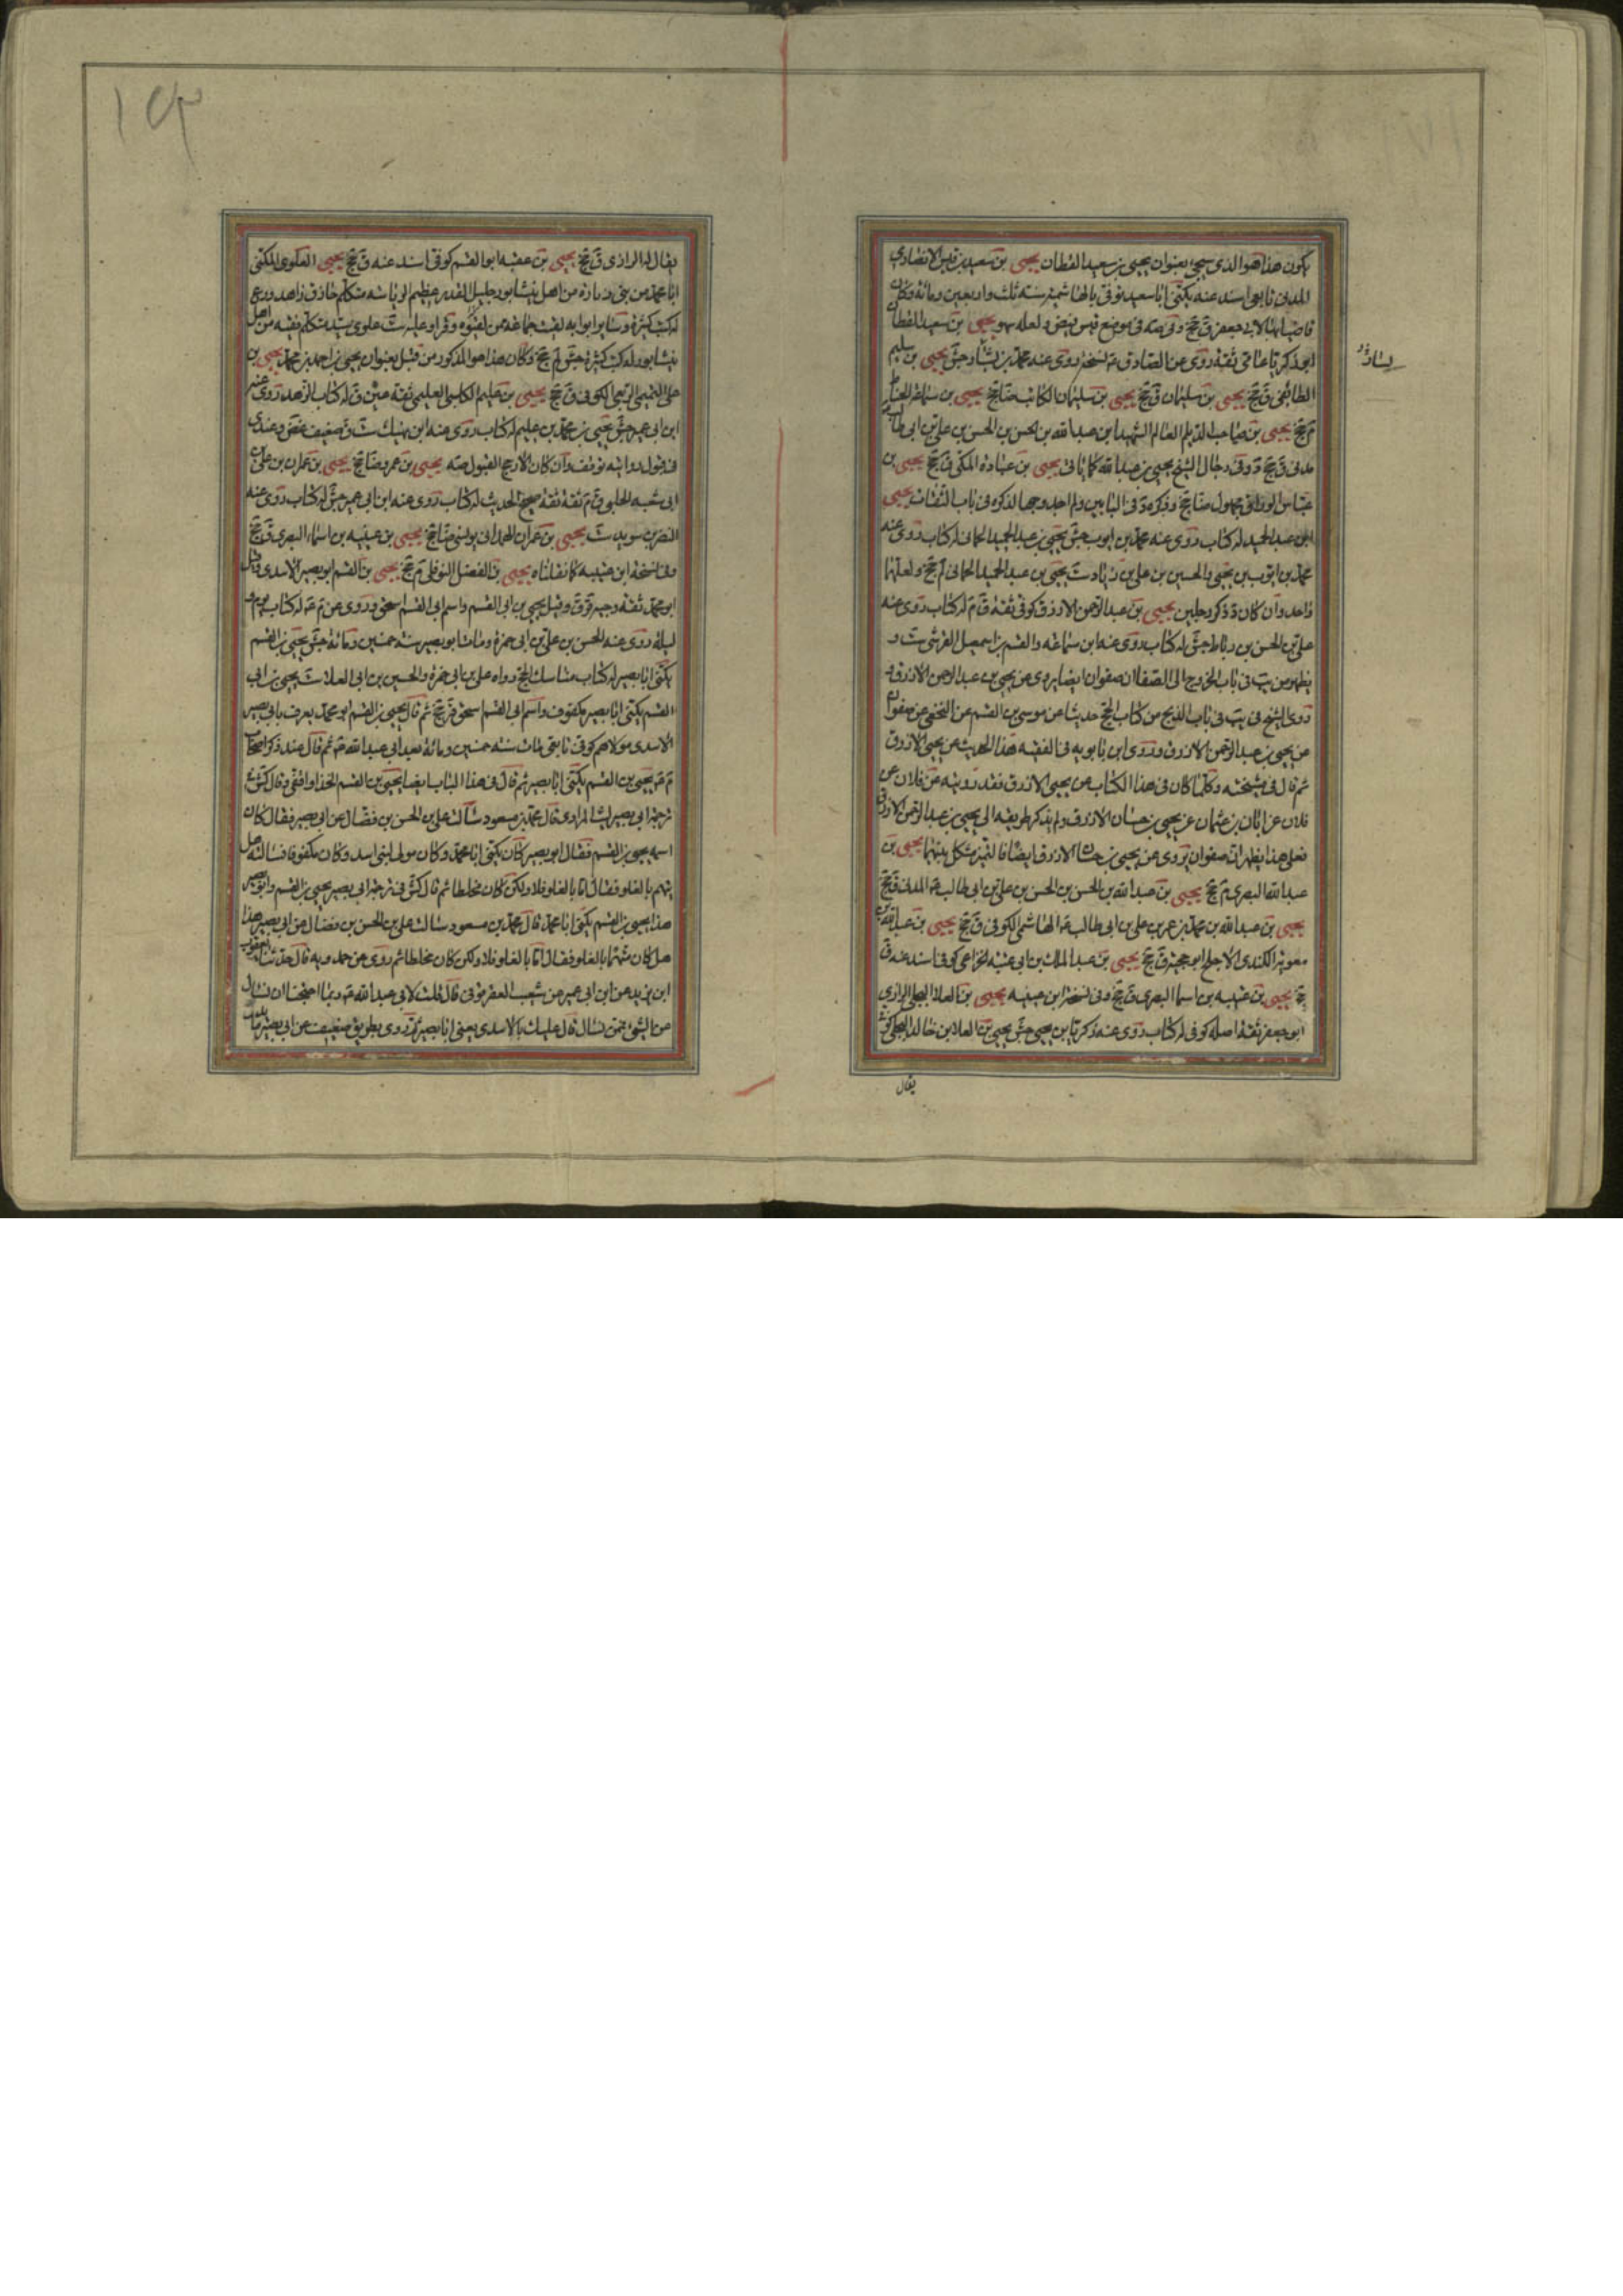 يكون هذا هو الذى سيجئ بعنوان يحيى بن سعيد القطان يحيى بن سعيد بن قيس الانصارى
المدنى تابعى اسند عنه يكنى ابا سعيد توفى بالهاشمية سنة ثلث واربعين ومائة وكان
قاضيا بها لابى جعفر ق جخ وفى صه فى موضع قيس فيض ولعله سهو يحيى بن سعيد القطان
ابو زكريا عامى ثقة روى عن الصادق ع نسخة روى عنه محمد بن بشار جش يحيى بن سليم
الطائفى ق جخ يحيى بن سليمان ق جخ يحيى بن سليمان الكاتب ضا جخ يحيى بن سماعة الحناط
م جخ يحيى بن صاحب الديلم العالم الشهيد ابن عبد الله بن الحسن بن الحسن بن على بن ابى طالب
مدنى ق جخ وفى رجال الشيخ يحيى بن عبد الله كما ياتى يحيى بن عبادة المكى ق جخ يحيى بن
عباس الوراق مجهول ضا جخ وذكره فى البابين ولم اجد وجها لذكره فى باب الثقات يحيى
ابن عبد الحميد له كتاب روى عنه محمد بن ايوب جش يحيى بن عبد الحميد الحمانى له كتاب روى عنه
محمد بن ايوب بن يحيى والحسين بن على بن زياد ست يحيى بن عبد الحميد الحمانى لم جخ ولعلهما
واحد وان كان د ذكر رجلين يحيى بن عبد الرحمن الازرق كوفى ثقة ق م له كتاب روى عنه
على بن الحسن بن رباط جش له كتاب روى عنه ابن سماعة والقسم بن اسمعيل القرشى ست و
يظهر من يب فى باب الخروج الى الصفا ان صفوان ايضا يروى عن يحيى بن عبد الرحمن الازرق و
روى الشيخ فى يب فى باب الذبح من كتاب الحج حديثا عن موسى بن القسم عن النخعى عن صفوان
عن يحيى بن عبد الرحمن الازرق وروى ابن بابويه فى الفقيه هذا الحديث عن يحيى الازرق
ثم قال فى مشيخته وكلما كان فى هذا الكتاب عن يحيى الازرق فقد رويته عن فلان عن
فلان عن ابان بن عثمان عن يحيى بن حسان الازرق ولم يذكر طريقه الى يحيى بن عبد الرحمن الازرق
فعلى هذا يظهر ان صفوان يروى عن يحيى بن حسان الازرق ايضا فالتميز مشكل بينهما يحيى بن
عبد الله البصرى م جخ يحيى بن عبد الله بن الحسن بن الحسن بن على بن ابى طالب ع المدنى ق جخ
يحيى بن عبد الله بن محمد بن عمر بن على بن ابى طالب ع الهاشمى الكوفى ق جخ يحيى بن عبد الله بن
معوية الكندى الاجلح ابو حجية ق جخ يحيى بن عبد الملك بن ابى عتبة الخزاعى كوفى اسند عنه ق
جخ يحيى بن عتيبه بن اسما البصرى ق جخ وفى نسخة ابن عيينه يحيى بن العلا البجلى الرازى
ابو جعفر ثقة اصله كوفى له كتاب روى عنه زكريا بن يحيى جش يحيى بن العلا بن خالد البجلى كوفى
يقال
يقال له الرازى ق جخ يحيى بن عقبه ابو القسم كوفى اسند عنه ق جخ يحيى العلوى المكنى
ابا محمد من بنى زبارة من اهل نيشابور جليل القدر عظيم الرياسة متكلم حاذق زاهد ورع
له كتب كثيرة
نيشابور له كتب كثيرة جش لم جخ وكان هذا هو المذكور من قبل بعنوان يحيى بن احمد بن محمد يحيى بن
ابن ابى عمير جش يحيى بن محمد بن عليم له كتاب روى عنه ابن نهيك ست وضعيف غض وعندى
فى قبول روايته توقف وان كان الارجح القبول صه يحيى بن عمر ضا جخ يحيى بن عمران بن على بن
ابى شعبة الحلبى ق م ثقة ثقة صحيح الحديث له كتاب روى عنه ابن ابى عمير جش له كتاب روى عنه
النضر بن سويد ست يحيى بن عمران الهمدانى يونسى ضا جخ يحيى بن عيينه بن اسماء البصرى ق جخ
وفى نسخة ابن عتيبه كما نقلناه يحيى بن الفضل النوفلى م جخ يحيى بن القسم ابو بصير الاسدى وقيل
ابو محمد ثقة وجيه قر ق وقيل يحيى بن ابى القسم واسم ابى القسم اسحق وروى عن م ع له كتاب يوم و
ليلة روى عنه الحسن بن على بن ابى حمزة ومات ابو بصير سنة خمسين ومائة جش يحيى بن القسم
يكنى ابا بصير له كتاب مناسك الحج رواه على بن ابى حمزة والحسين بن ابى العلا ست يحيى بن ابى
القسم يكنى ابا بصير مكفوف واسم ابى القسم اسحق قر جخ ثم قال يحيى بن القسم ابو محمد يعرف بابى بصير
الاسدى مولاهم كوفى تابعى مات سنة خمسين ومائة بعد ابى عبد الله ع ثم قال عند ذكر اصحاب
م ع يحيى بن القسم يكنى ابا بصير ثم قال فى هذا الباب ايضا يحيى بن القسم الحذا واقفى وقال كش فى
ترجمة ابى بصير ليث المرادى قال محمد بن مسعود سالت على بن الحسن بن فضال عن ابى بصير فقال كان
اسمه يحيى بن القسم فقال ابو بصير كان يكنى ابا محمد وكان مولى لبنى اسد وكان مكفوفا فسالته هل
يتهم بالغلو فقال اما بالغلو فلا ولكن كان مخلطا ثم قال كش فى ترجمة ابى بصير يحيى بن القسم وابو بصير
هذا يحيى بن القسم يكنى ابا محمد قال محمد بن مسعود سالت على بن الحسن بن فضال عن ابى بصير هذا
هل كان متهما بالغلو فقال اما بالغلو فلا ولكن كان مخلطا ثم روى عن حمدويه قال حدثنا يعقوب
ابن يزيد عن ابن ابى عمير عن شعيب العقرقوفى قال قلت لابى عبد الله ع ربما احتجنا ان نسال
عن الشئ فمن نسال قال عليك بالاسدى يعنى ابا بصير ثم روى بطريق ضعيف عن ابى بصير